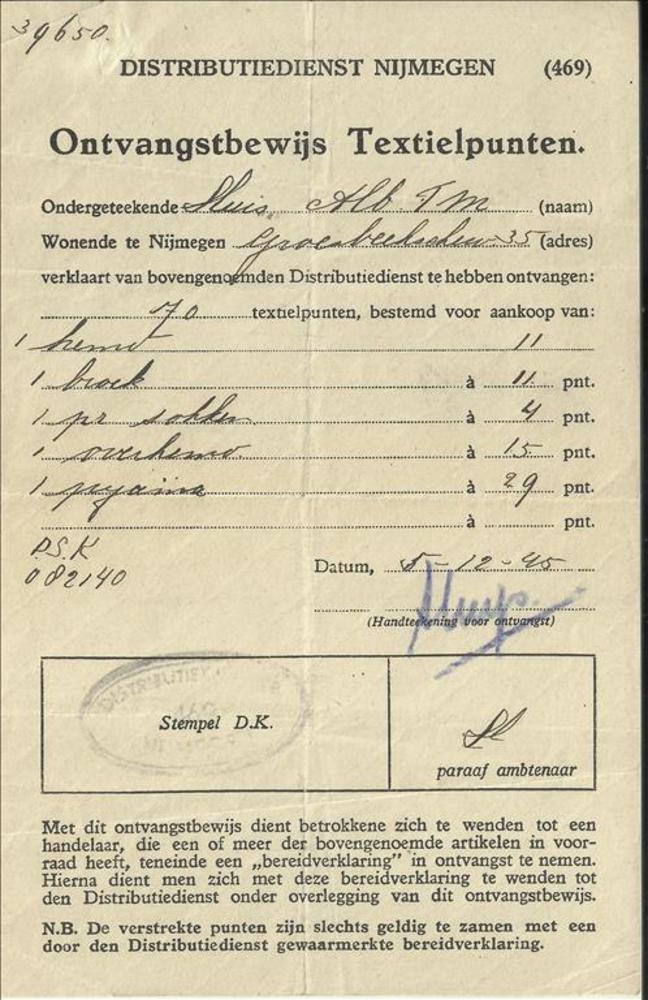 39650.
DISTRIBUTIEDIENST NIJMEGEN (469)
Ontvangstbewijs Textielpunten.
Ondergeteekende Sluis, Alb. T M (naam)
Wonende te Nijmegen 35 (adres)
verklaart van bovengenoemden Distributiedienst te hebben ontvangen:
70 textielpunten, bestemd voor aankoop van:
1 hemd 11
1 broek à 11 pnt.
1 pr sokken à 4 pnt.
1 overhemd à 15 pnt.
1 pyama à 29 pnt.
à pnt.
D.S.K
082140
Datum, 5-12-45
(Handteekening voor ontvangst)
DISTRIBUTIE
Stempel D.K.
paraaf ambtenaar
Met dit ontvangstbewijs dient betrokkene zich te wenden tot een
handelaar, die een of meer der bovengenoemde artikelen in voor-
raad heeft, teneinde een „bereidverklaring” in ontvangst te nemen.
Hierna dient men zich met deze bereidverklaring te wenden tot
den Distributiedienst onder overlegging van dit ontvangstbewijs.
N.B. De verstrekte punten zijn slechts geldig te zamen met een
door den Distributiedienst gewaarmerkte bereidverklaring.